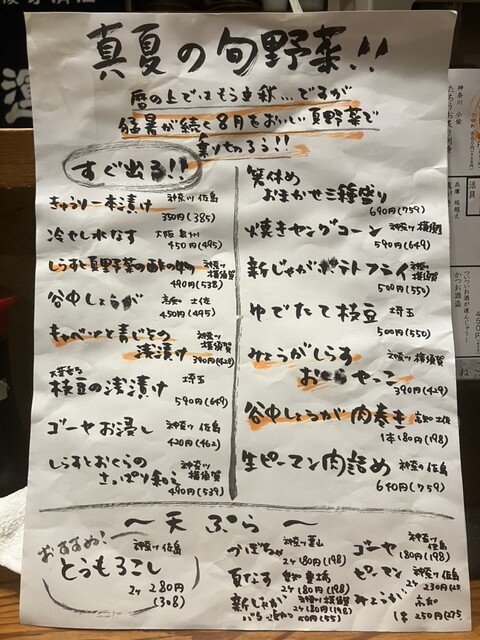 真夏の旬野菜!!
暦の上ではもう立秋…ですが
猛暑が続く8月をおいしい夏野菜で
乗りきろう!!
すぐ出る!!
きゅうり一本漬け 神奈川 佐島
350円(385)
冷やし水なす 大阪 泉州
450円(495)
しらすと夏野菜の酢の物 神奈川 横須賀
490円(538)
谷中しょうが 高知 土佐
450円(495)
キャベツと青じその 神奈川 横須賀
浅漬け 390円(429)
枝豆の浅漬け 埼玉
590円(649)
ゴーヤお浸し 神奈川 佐島
420円(462)
しらすとおくらの 神奈川 横須賀
さっぱり和え 490円(539)
箸休め
おまかせ三種盛り
690円(759)
焼きヤングコーン 神奈川 横須賀
590円(649)
新じゃがポテトフライ 神奈川 横須賀
500円(550)
ゆでたて枝豆 埼玉
500円(550)
みょうがしらす 神奈川 横須賀
おひやっこ
390円(429)
谷中しょうが肉巻き 高知 土佐
1本180円(198)
生ピーマン肉詰め 神奈川 佐島
690円(759)
〜天ぷら〜
おすすめ!
とうもろこし 神奈川 佐島
2ケ 280円
(308)
かぼちゃ 神奈川 葉山
2ケ180円(198)
夏なす
2ケ180円(198)
新じゃが 神奈川 横須賀
2ケ180円(198)
ゴーヤ 神奈川 佐島
180円(198)
ピーマン 神奈川 佐島
2ケ 230円(25
みょうが 高知
1本 250円(275
神奈川 小柴
兵庫
かつお酒盗